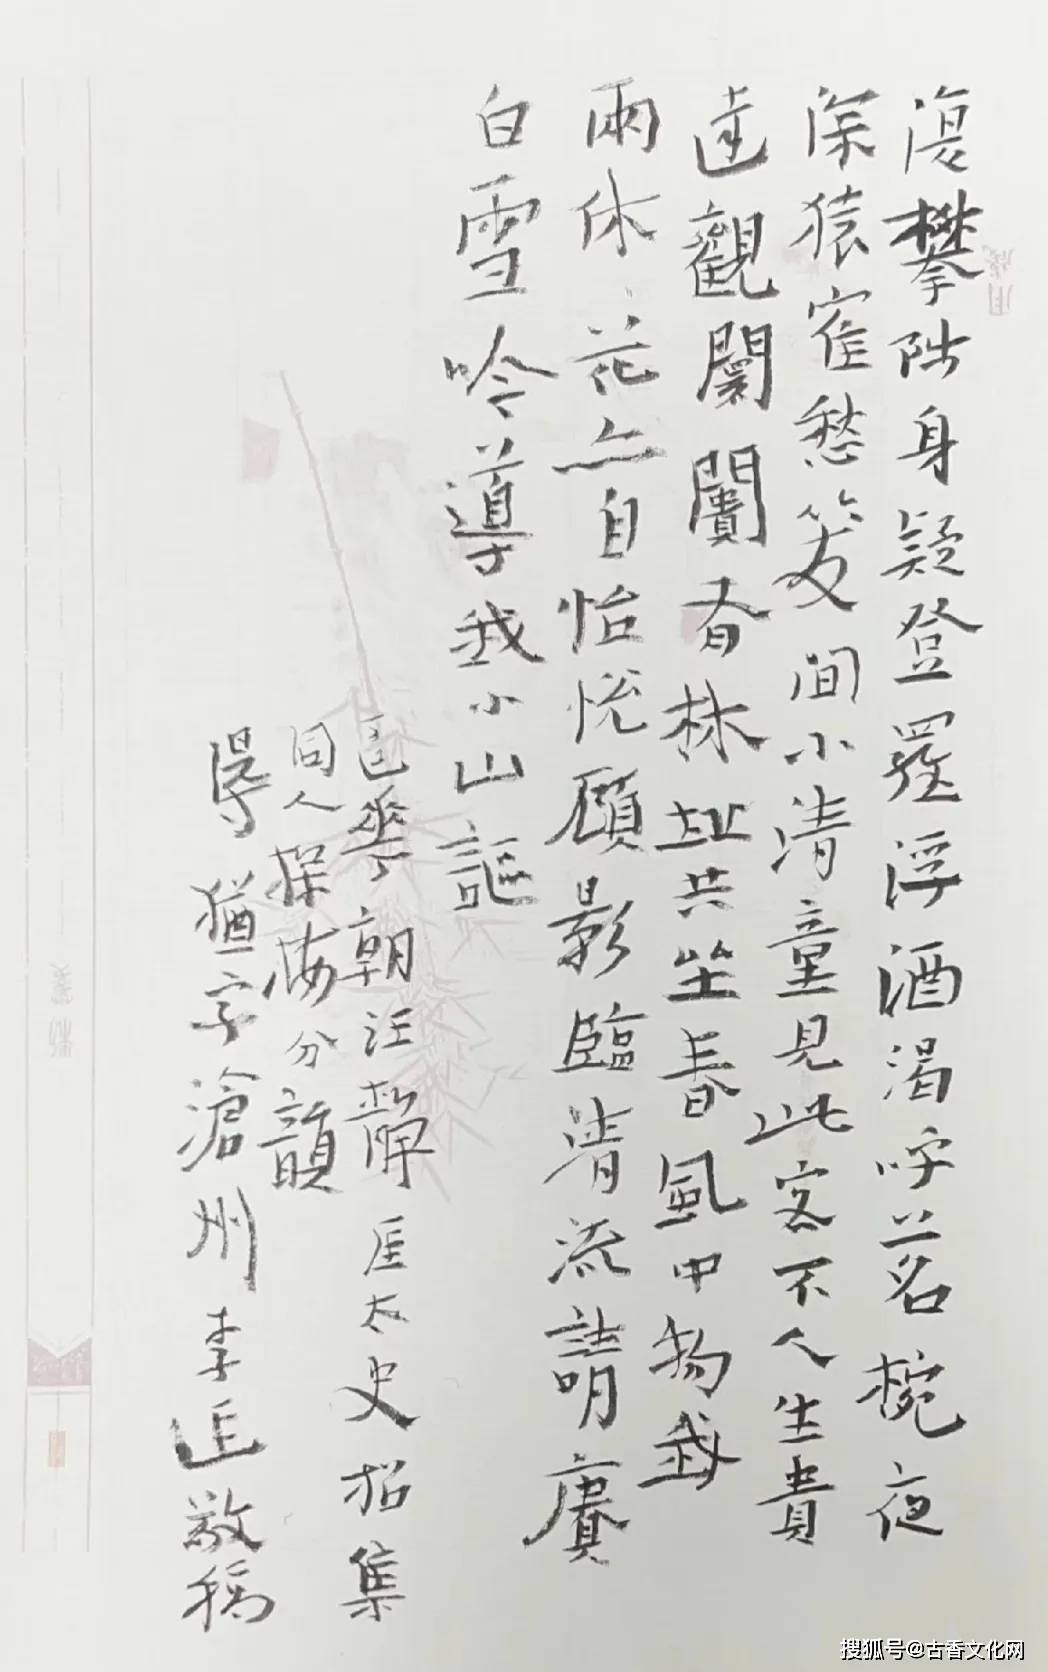 復攀陟身疑登羅浮酒渴呼茗椀夜
深猿寉愁笑問小清童見此客不人生貴
達觀闤闠有林址共坐春風中物我
兩休休花亦自怡悦顧影臨清流請賡
白雪吟導我小山謳
花朝汪静厓太史招集
同人探梅分韻
得猶字滄州李匡敬稿
搜狐号@古香文化网